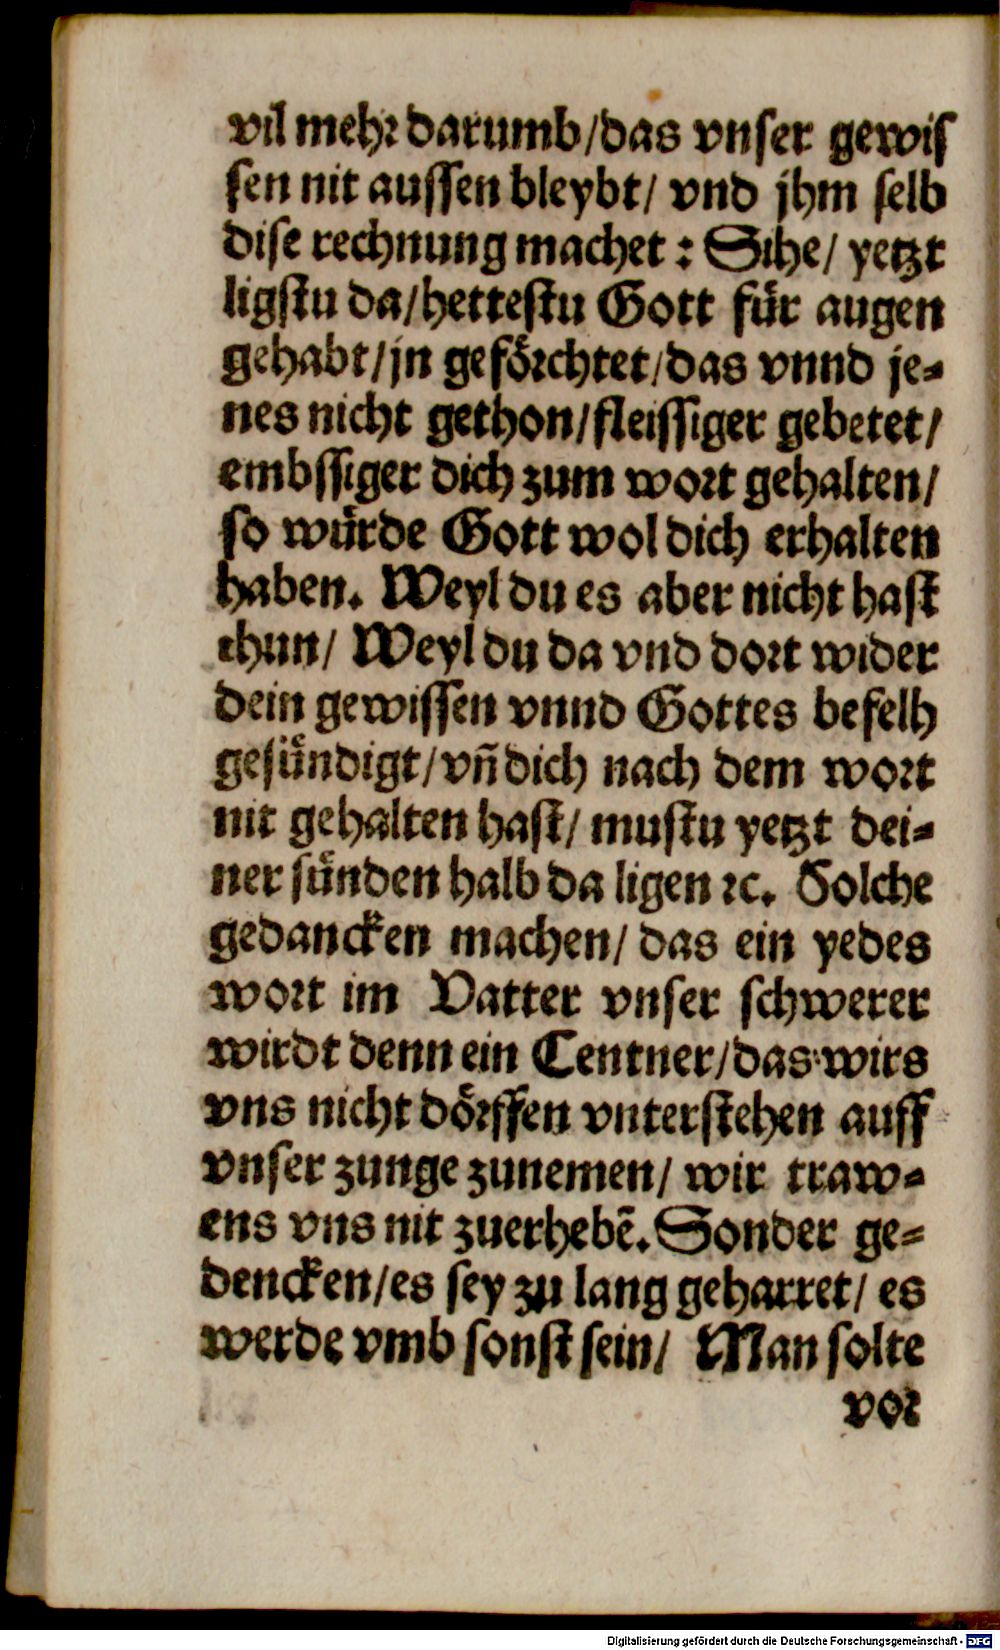 vil mehr darumb/das vnser gewiſ
ſen nit auſſen bleybt/ vnd jhm ſelb
diſe rechnung machet: Sihe/ yetzt
ligſtu da/hetteſtu Gott fuͤr augen
gehabt/jn gefoͤrchtet/das vnnd je-
nes nicht gethon/fleiſſiger gebetet/
embſſiger dich zum wort gehalten/
ſo wuͤrde Gott wol dich erhalten
haben. Weyl du es aber nicht haſt
thun/ Weyl du da vnd dort wider
dein gewiſſen vnnd Gottes befelh
geſuͤndigt/vñ dich nach dem wort
nit gehalten haſt/ muſtu yetzt dei-
ner ſuͤnden halb da ligen ꝛc. Solche
gedancken machen/ das ein yedes
wort im Vatter vnſer ſchwerer
wirdt denn ein Centner/das wirs
vns nicht doͤrffen vnterſtehen auff
vnſer zunge zunemen/ wir traw-
ens vns nit zuerhebẽ. Sonder ge-
dencken/es ſey zu lang geharret/ es
werde vmb ſonſt ſein/ Man ſolte
vor
Digitalisierung gefördert durch die Deutsche Forschungsgemeinschaft - DFG